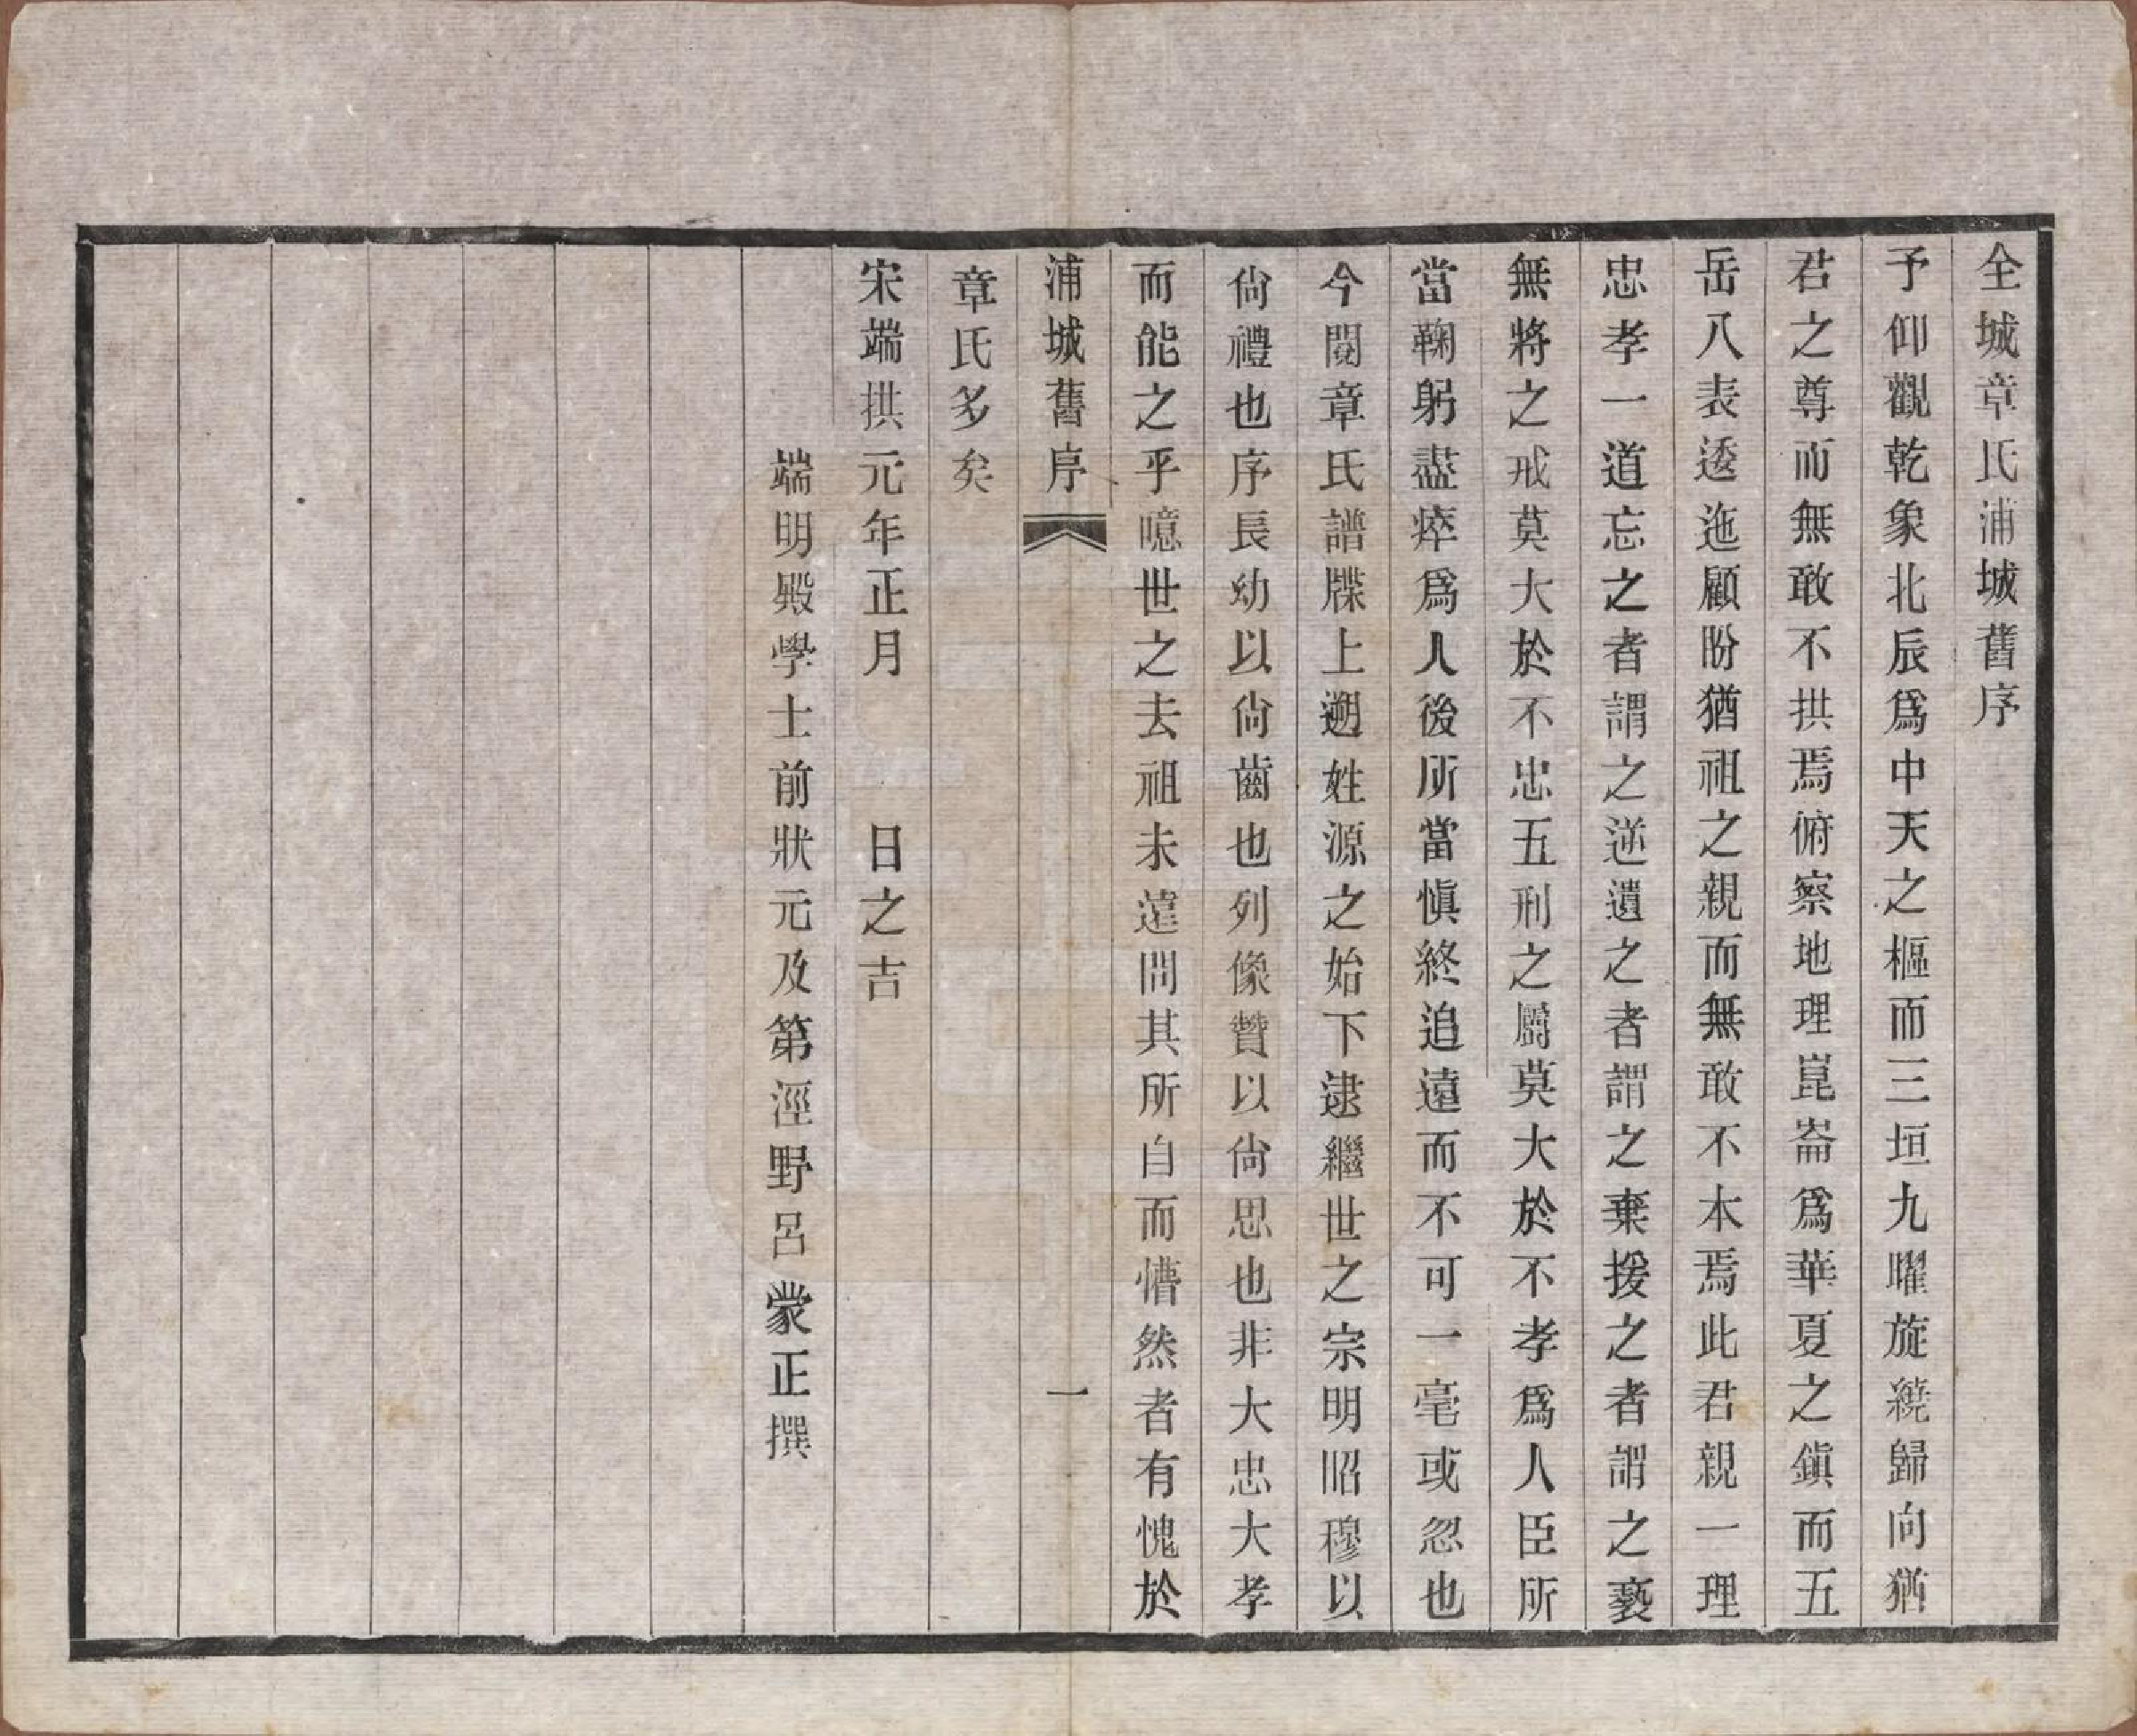 全城章氏浦城舊序
予仰觀乾象北辰爲中天之樞而三垣九曜旋繞歸向猶
君之尊而無敢不拱焉俯察地理崑崙爲華夏之鎭而五
岳八表逶迤顧盼猶祖之親而無敢不木焉此君親一理
忠孝一道忘之者謂之逆遺之者謂之棄援之者謂之褻
無將之戒莫大於不忠五刑之屬莫大於不孝爲人臣所
當鞠躬盡瘁爲人後所當愼終追遠而不可一毫或忽也
今閱章氏譜牒上遡姓源之始下逮繼世之宗明昭穆以
尙禮也序長幼以尙齒也列像贊以尙思也非大忠大孝
而能之乎噫世之去祖未遠問其所自而懵然者有愧於
浦城舊序 一
章氏多矣
宋端拱元年正月 日之吉
端明殿學士前狀元及第涇野呂蒙正撰